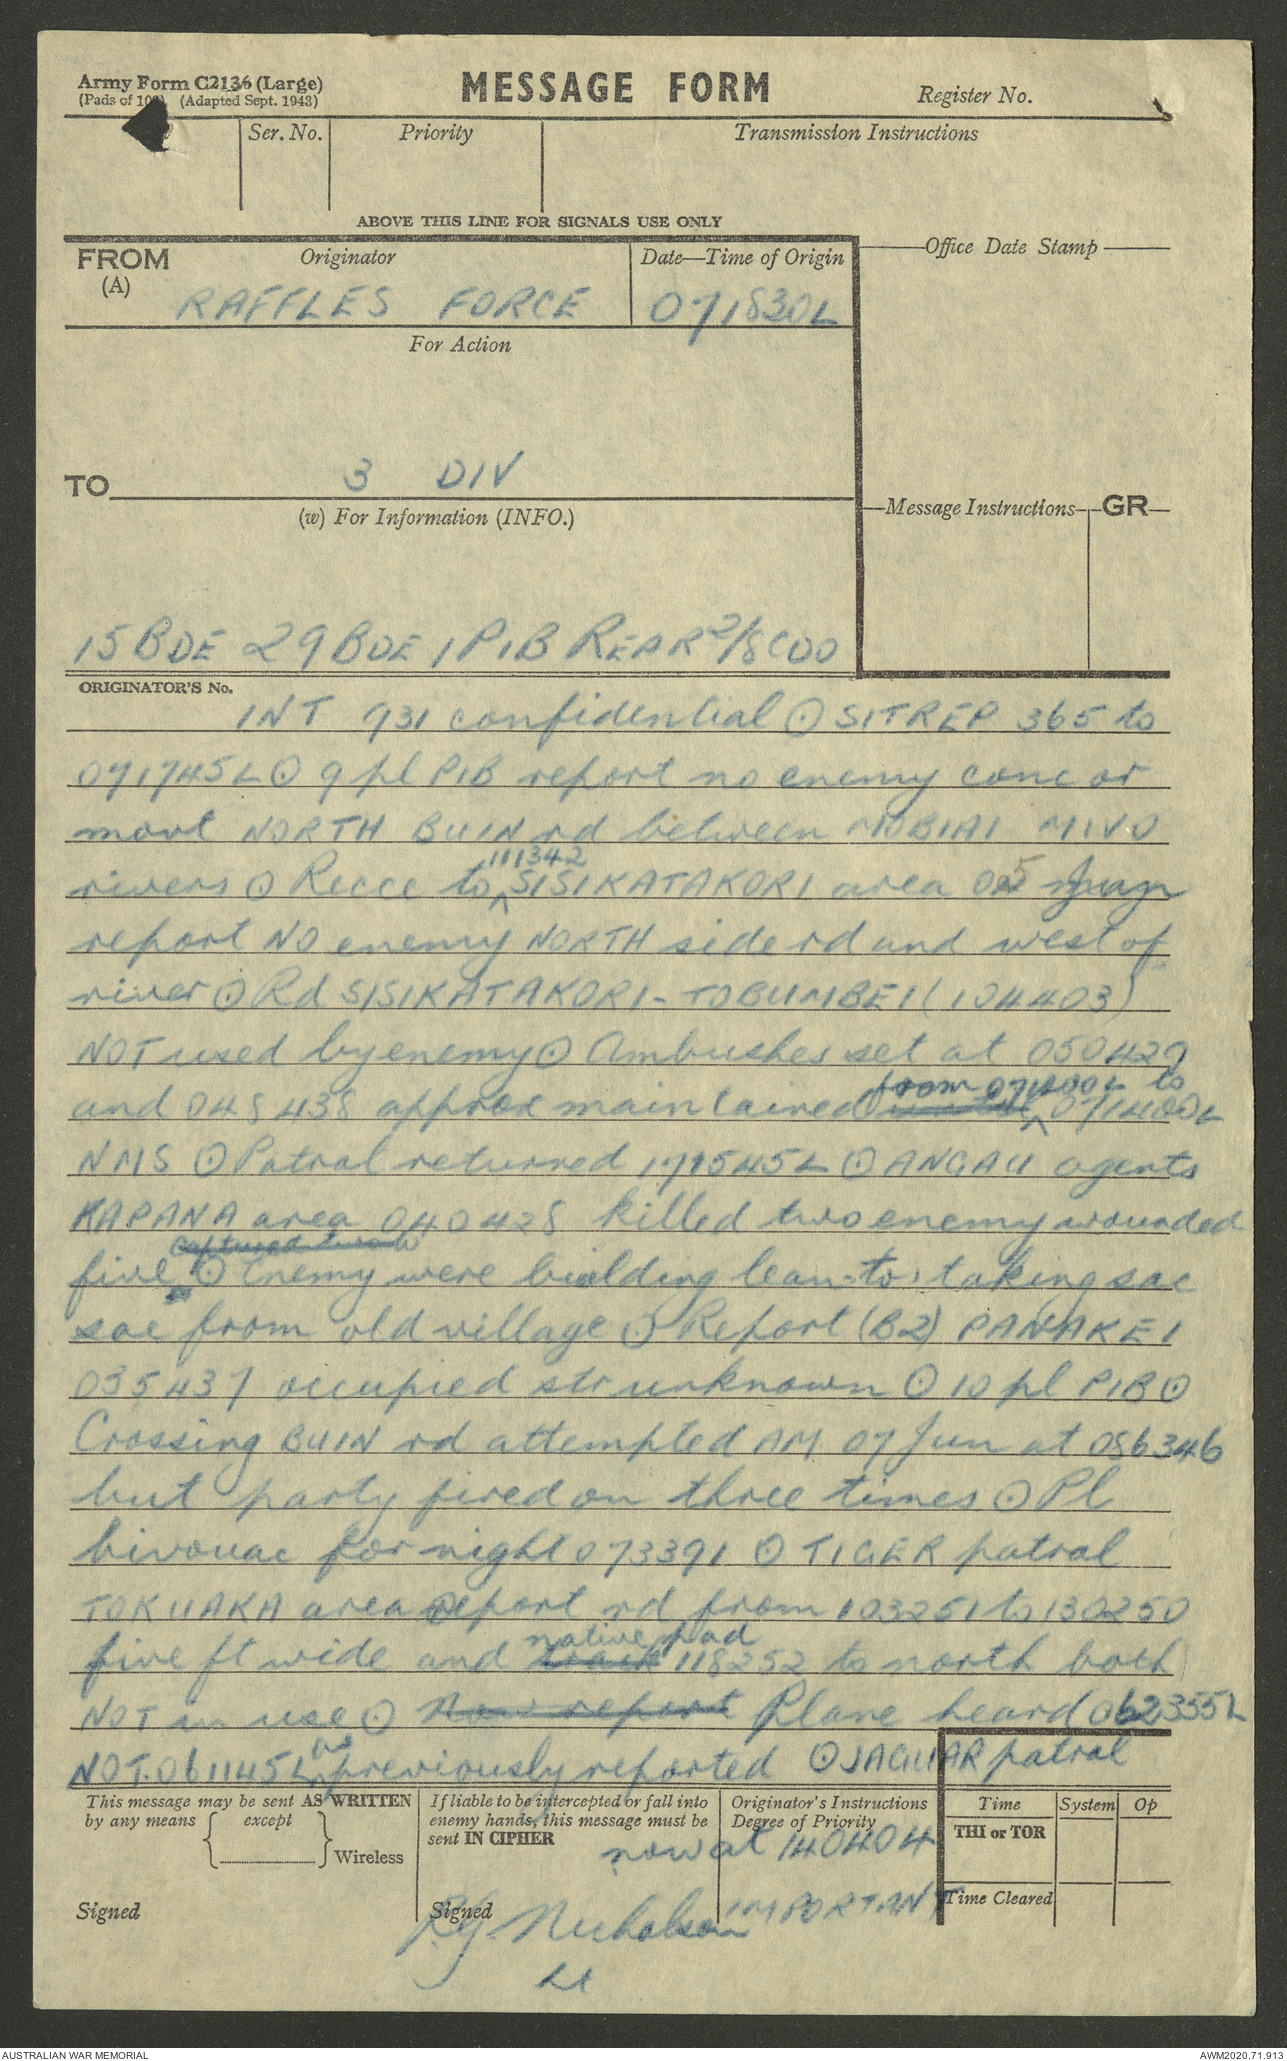 Army Form C2136 (Large)
(Pads of 100) (Adapted Sept. 1943)
MESSAGE FORM
Register No.
Ser. No. Priority Transmission Instructions
ABOVE THIS LINE FOR SIGNALS USE ONLY
FROM
(A)
Originator
Date—Time of Origin
Office Date Stamp
RAFFLES FORCE 071830L
For Action
TO 3 DIV
(w) For Information (INFO.)
Message Instructions GR
15 BDE 29 BDE 1 PIB REAR 2/8 CDO
ORIGINATOR'S No.
INT 931 confidential ⊙ SITREP 365 to
071745L ⊙ 9 pl PIB report no enemy conc or
movt NORTH BUIN rd between MOBIAI MIVO
111342
rivers ⊙ Recce to ^ SISIKATAKORI area 05
report NO enemy NORTH side rd and west of
river ⊙ Rd SISIKATAKORI - TOBUMBEI (104403)
NOT used by enemy ⊙ Ambushes set at 050429
from to
and 048438 approx maintained ^ 071400L
NMS ⊙ Patrol returned ⊙ ANGAU agents
KAPANA area 040428 killed two enemy wounded
five ⊙ Enemy were building lean-to, taking sac
sac from old village ⊙ Report (B2) PANAKEI
035437 occupied str unknown ⊙ 10 pl PIB ⊙
Crossing BUIN rd attempted AM 07 Jun at 086346
but party fired on three times ⊙ Pl
bivouac for night 073391 ⊙ TIGER patrol
TOKUAKA area report rd from 103251 to 130250
native pad
five ft wide and 118252 to north both
NOT in use ⊙ Plane heard 062355L
as
NOT 061145L ^ previously reported ⊙ JAGUAR patrol
now at 140404
This message may be sent AS WRITTEN
by any means except
Wireless
Signed
If liable to be intercepted or fall into
enemy hands, this message must be
sent IN CIPHER
Signed
Originator's Instructions
Degree of Priority
IMPORTANT
Time System Op
THI or TOR
Time Cleared
Nicholson
Lt
AUSTRALIAN WAR MEMORIAL
AWM2020.71.913